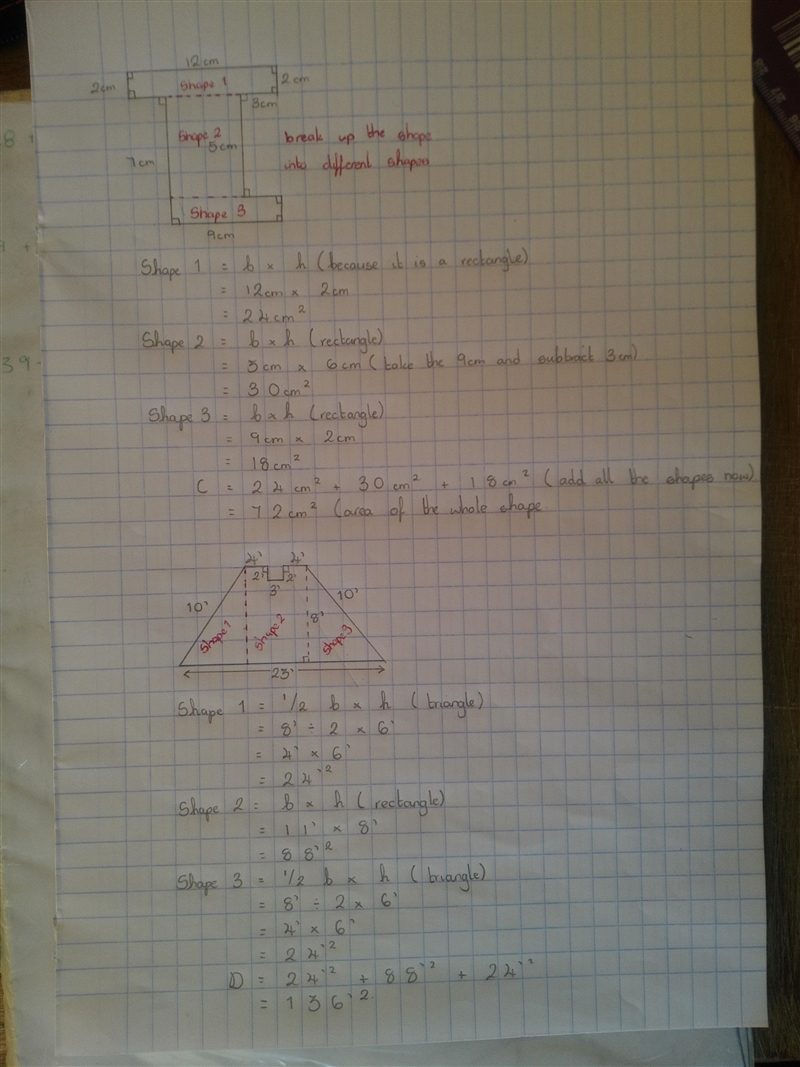 12cm
2cm
Shape 1
2cm
3cm
Shape 2
5cm
7cm
break up the shape
into different shapes
Shape 3
9cm
Shape 1 = b × h (because it is a rectangle)
= 12cm × 2cm
= 24cm²
Shape 2 = b × h (rectangle)
= 5cm × 6cm (take the 9cm and subtract 3cm)
= 30cm²
Shape 3 = b × h (rectangle)
= 9cm × 2cm
= 18cm²
C = 24cm² + 30cm² + 18cm² (add all the shapes now)
= 72cm² (area of the whole shape
4' 4'
2' 2'
3'
10' 10'
8'
Shape 1 Shape 2 Shape 3
23'
Shape 1 = 1/2 b × h (triangle)
= 8' ÷ 2 × 6'
= 4' × 6'
= 24'²
Shape 2 = b × h (rectangle)
= 11' × 8'
= 88'²
Shape 3 = 1/2 b × h (triangle)
= 8' ÷ 2 × 6'
= 4' × 6'
= 24'²
D = 24'² + 88'² + 24'²
= 136'²